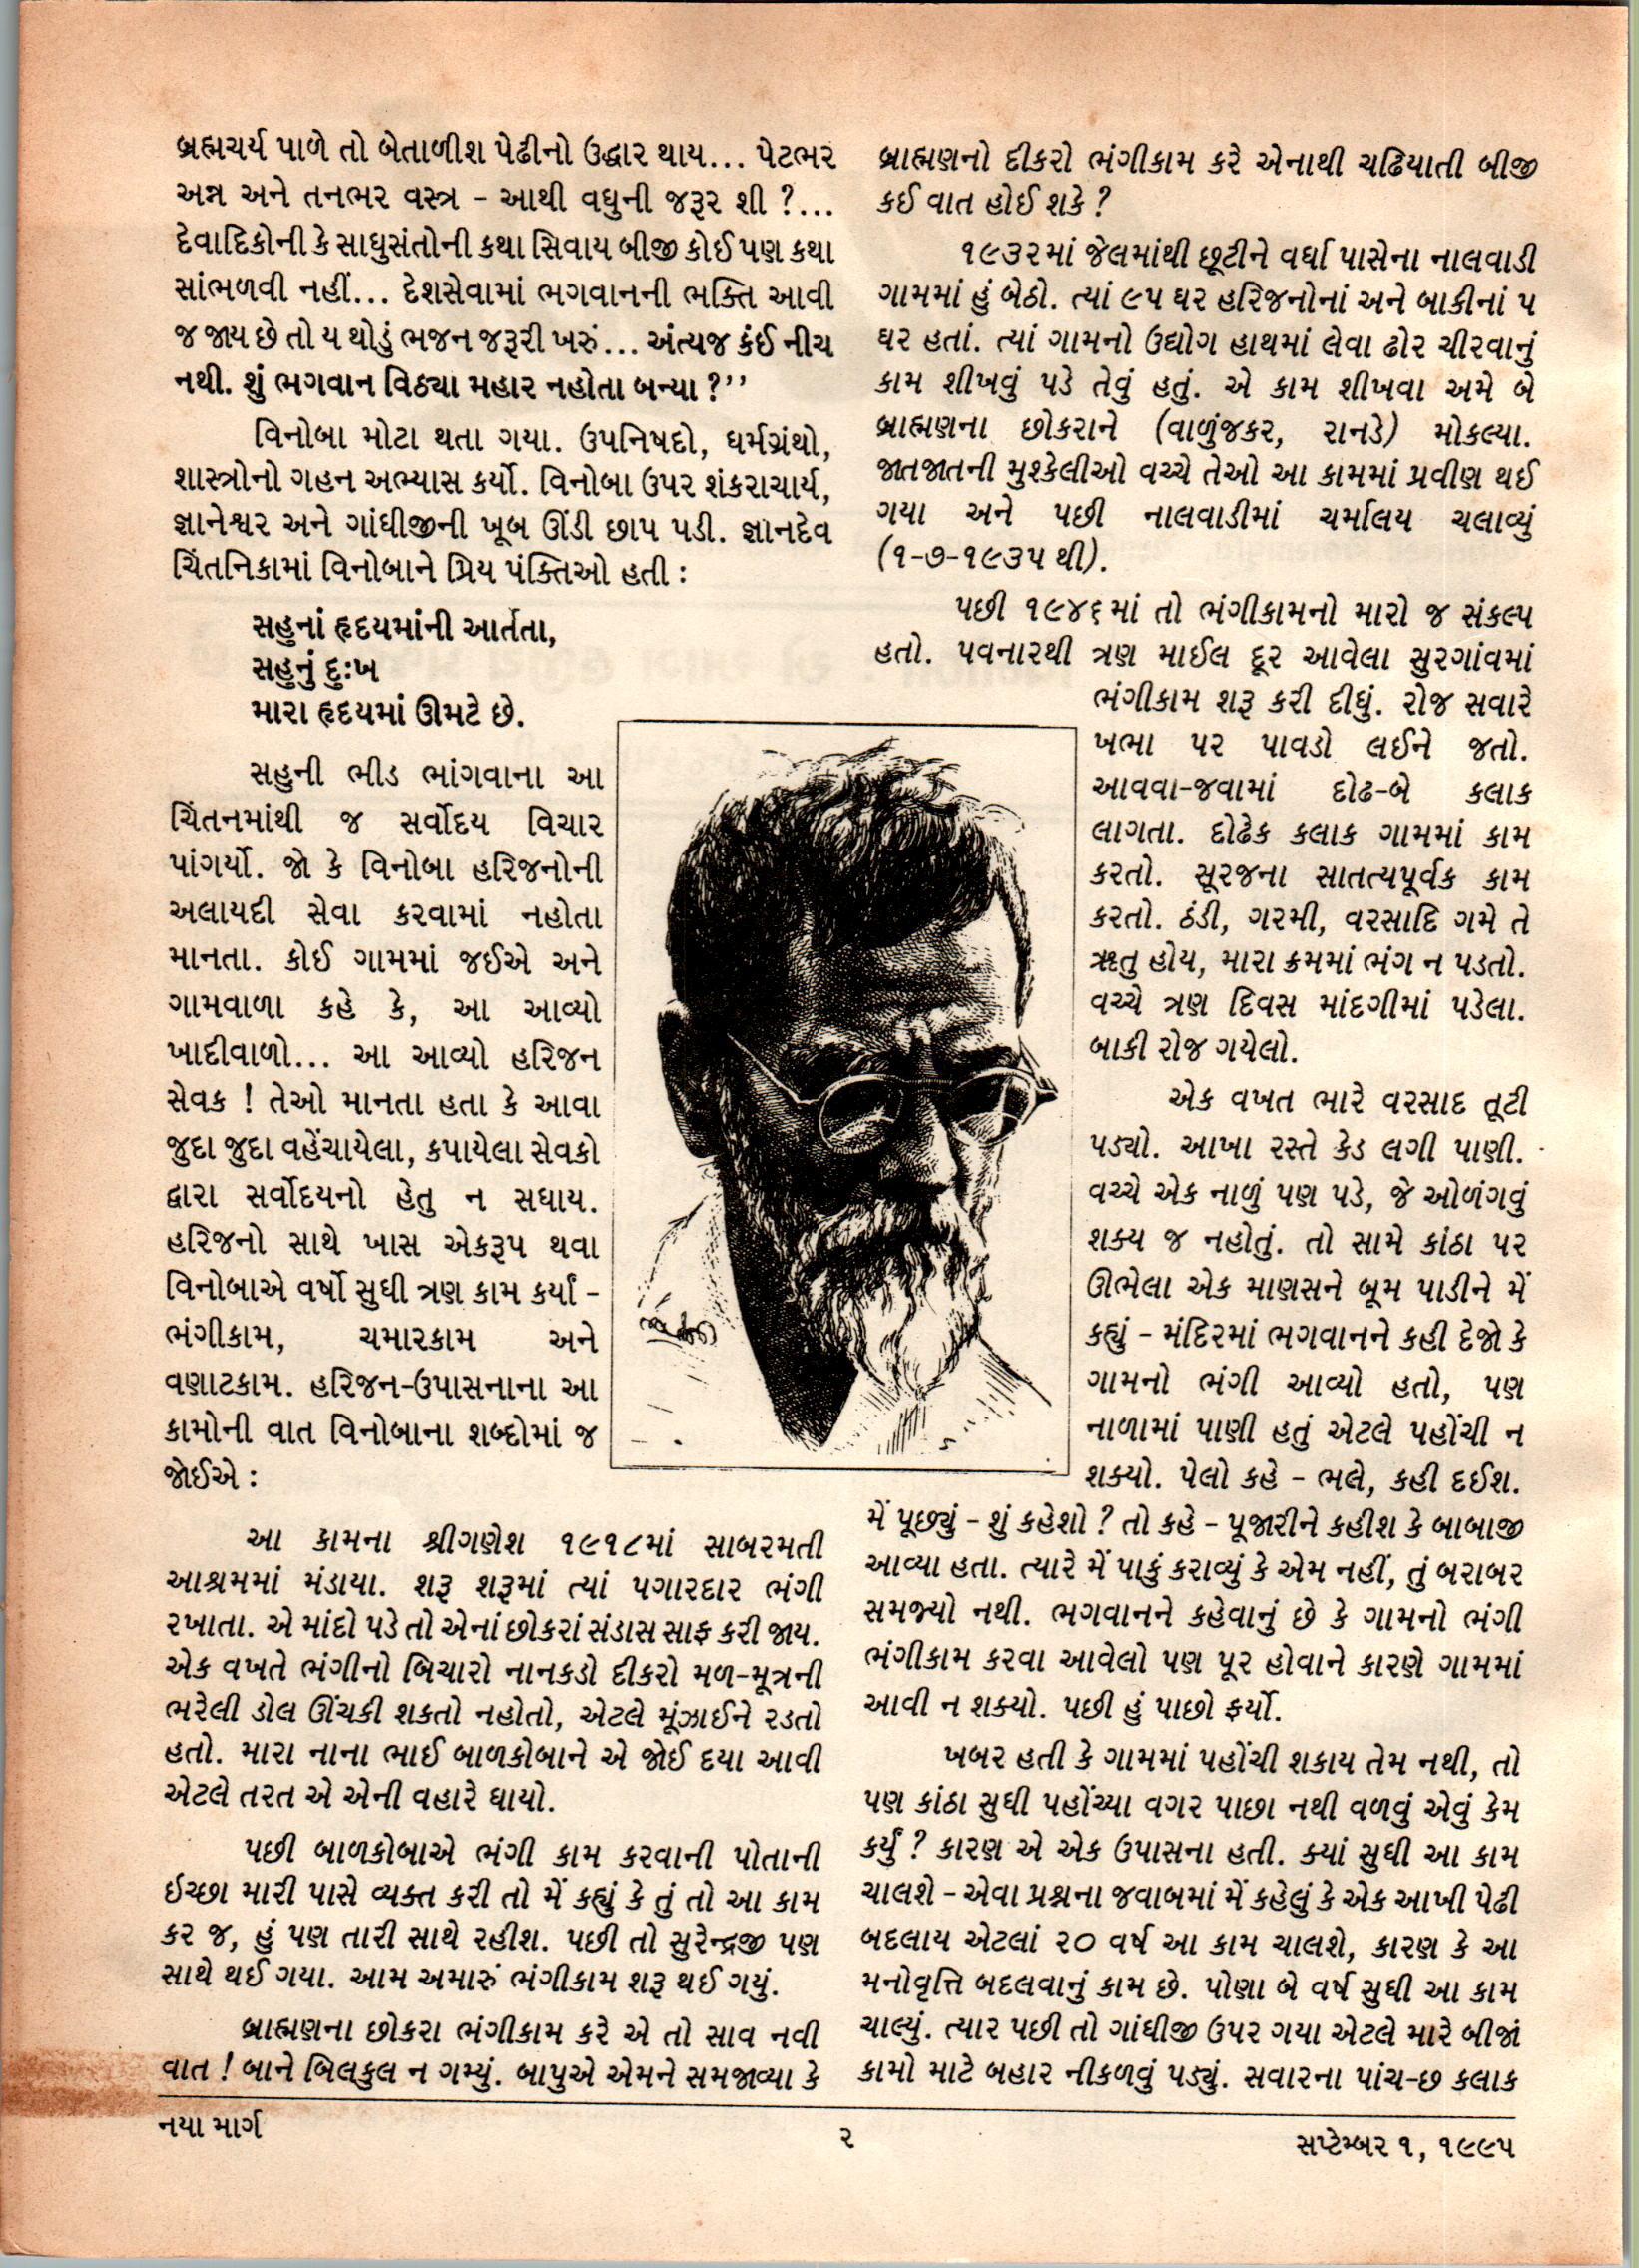 બ્રહ્મચર્ય પાળે તો બેતાળીશ પેઢીનો ઉદ્ધાર થાય... પેટભર
અન્ન અને તનભર વસ્ત્ર - આથી વધુની જરૂર શી ?...
દેવાદિકોની કે સાધુસંતોની કથા સિવાય બીજી કોઈ પણ કથા
સાંભળવી નહીં... દેશસેવામાં ભગવાનની ભક્તિ આવી
જ જાય છે તો ય થોડું ભજન જરૂરી ખરું... અંત્યજ કંઈ નીચ
નથી. શું ભગવાન વિઠ્યા મહાર નહોતા બન્યા ?''
વિનોબા મોટા થતા ગયા. ઉપનિષદો, ધર્મગ્રંથો,
શાસ્ત્રોનો ગહન અભ્યાસ કર્યો. વિનોબા ઉપર શંકરાચાર્ય,
જ્ઞાનેશ્વર અને ગાંધીજીની ખૂબ ઊંડી છાપ પડી. જ્ઞાનદેવ
ચિંતનિકામાં વિનોબાને પ્રિય પંક્તિઓ હતી :
સહુનાં હૃદયમાંની આર્તતા,
સહુનું દુઃખ
મારા હૃદયમાં ઊમટે છે.
સહુની ભીડ ભાંગવાના આ
ચિંતનમાંથી જ સર્વોદય વિચાર
પાંગર્યો. જો કે વિનોબા હરિજનોની
અલાયદી સેવા કરવામાં નહોતા
માનતા. કોઈ ગામમાં જઈએ અને
ગામવાળા કહે કે, આ આવ્યો
ખાદીવાળો... આ આવ્યો હરિજન
સેવક ! તેઓ માનતા હતા કે આવા
જુદા જુદા વહેંચાયેલા, કપાયેલા સેવકો
દ્વારા સર્વોદયનો હેતુ ન સધાય.
હરિજનો સાથે ખાસ એકરૂપ થવા
વિનોબાએ વર્ષો સુધી ત્રણ કામ કર્યાં -
ભંગીકામ, ચમારકામ અને
વણાટકામ. હરિજન-ઉપાસનાના આ
કામોની વાત વિનોબાના શબ્દોમાં જ
જોઈએ :
આ કામના શ્રીગણેશ ૧૯૧૮માં સાબરમતી
આશ્રમમાં મંડાયા. શરૂ શરૂમાં ત્યાં પગારદાર ભંગી
રખાતા. એ માંદો પડે તો એનાં છોકરાં સંડાસ સાફ કરી જાય.
એક વખતે ભંગીનો બિચારો નાનકડો દીકરો મળ-મૂત્રની
ભરેલી ડોલ ઊંચકી શકતો નહોતો, એટલે મૂંઝાઈને રડતો
હતો. મારા નાના ભાઈ બાળકોબાને એ જોઈ દયા આવી
એટલે તરત એ એની વહારે ધાયો.
પછી બાળકોબાએ ભંગી કામ કરવાની પોતાની
ઈચ્છા મારી પાસે વ્યક્ત કરી તો મેં કહ્યું કે તું તો આ કામ
કર જ, હું પણ તારી સાથે રહીશ. પછી તો સુરેન્દ્રજી પણ
સાથે થઈ ગયા. આમ અમારું ભંગીકામ શરૂ થઈ ગયું.
બ્રાહ્મણના છોકરા ભંગીકામ કરે એ તો સાવ નવી
વાત ! બાને બિલકુલ ન ગમ્યું. બાપુએ એમને સમજાવ્યા કે
બ્રાહ્મણનો દીકરો ભંગીકામ કરે એનાથી ચઢિયાતી બીજી
કઈ વાત હોઈ શકે ?
૧૯૩૨માં જેલમાંથી છૂટીને વર્ધા પાસેના નાલવાડી
ગામમાં હું બેઠો. ત્યાં ૯૫ ઘર હરિજનોનાં અને બાકીનાં ૫
ઘર હતાં. ત્યાં ગામનો ઉદ્યોગ હાથમાં લેવા ઢોર ચીરવાનું
કામ શીખવું પડે તેવું હતું. એ કામ શીખવા અમે બે
બ્રાહ્મણના છોકરાને (વાળુંજકર, રાનડે) મોકલ્યા.
જાતજાતની મુશ્કેલીઓ વચ્ચે તેઓ આ કામમાં પ્રવીણ થઈ
ગયા અને પછી નાલવાડીમાં ચર્માલય ચલાવ્યું
(૧-૭-૧૯૩૫ થી).
પછી ૧૯૪૬માં તો ભંગીકામનો મારો જ સંકલ્પ
હતો. પવનારથી ત્રણ માઈલ દૂર આવેલા સુરગાંવમાં
ભંગીકામ શરૂ કરી દીધું. રોજ સવારે
ખભા પર પાવડો લઈને જતો.
આવવા-જવામાં દોઢ-બે કલાક
લાગતા. દોઢેક કલાક ગામમાં કામ
કરતો. સૂરજના સાતત્યપૂર્વક કામ
કરતો. ઠંડી, ગરમી, વરસાદિ ગમે તે
ઋતુ હોય, મારા ક્રમમાં ભંગ ન પડતો.
વચ્ચે ત્રણ દિવસ માંદગીમાં પડેલા.
બાકી રોજ ગયેલો.
એક વખત ભારે વરસાદ તૂટી
પડ્યો. આખા રસ્તે કેડ લગી પાણી.
વચ્ચે એક નાળું પણ પડે, જે ઓળંગવું
શક્ય જ નહોતું. તો સામે કાંઠા પર
ઊભેલા એક માણસને બૂમ પાડીને મેં
કહ્યું - મંદિરમાં ભગવાનને કહી દેજો કે
ગામનો ભંગી આવ્યો હતો, પણ
નાળામાં પાણી હતું એટલે પહોંચી ન
શક્યો. પેલો કહે - ભલે, કહી દઈશ.
મેં પૂછ્યું - શું કહેશો ? તો કહે - પૂજારીને કહીશ કે બાબાજી
આવ્યા હતા. ત્યારે મેં પાકું કરાવ્યું કે એમ નહીં, તું બરાબર
સમજ્યો નથી. ભગવાનને કહેવાનું છે કે ગામનો ભંગી
ભંગીકામ કરવા આવેલો પણ પૂર હોવાને કારણે ગામમાં
આવી ન શક્યો. પછી હું પાછો ફર્યો.
ખબર હતી કે ગામમાં પહોંચી શકાય તેમ નથી, તો
પણ કાંઠા સુધી પહોંચ્યા વગર પાછા નથી વળવું એવું કેમ
કર્યું ? કારણ એ એક ઉપાસના હતી. ક્યાં સુધી આ કામ
ચાલશે - એવા પ્રશ્નના જવાબમાં મેં કહેલું કે એક આખી પેઢી
બદલાય એટલાં ૨૦ વર્ષ આ કામ ચાલશે, કારણ કે આ
મનોવૃત્તિ બદલવાનું કામ છે. પોણા બે વર્ષ સુધી આ કામ
ચાલ્યું. ત્યાર પછી તો ગાંધીજી ઉપર ગયા એટલે મારે બીજાં
કામો માટે બહાર નીકળવું પડ્યું. સવારના પાંચ-છ કલાક
નયા માર્ગ
૨
સપ્ટેમ્બર ૧, ૧૯૯૫